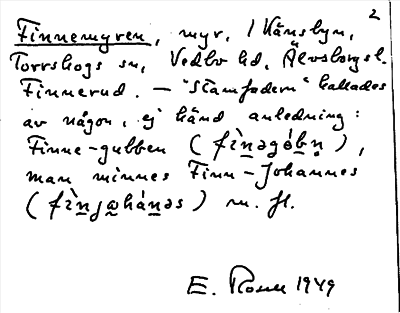 2
Finnemyren, myr, / Hänsbyn,
Torrskogs sn, Vedbo hd, Älvsborgs l.
Finnerud. – "Stamfadern" kallades
av någon, ej känd anledning:
Finne-gubben (fìnəgóbn̥),
man minnes Finn-Johannes
(fìnjɷhánəs) m. fl.
E. 1949